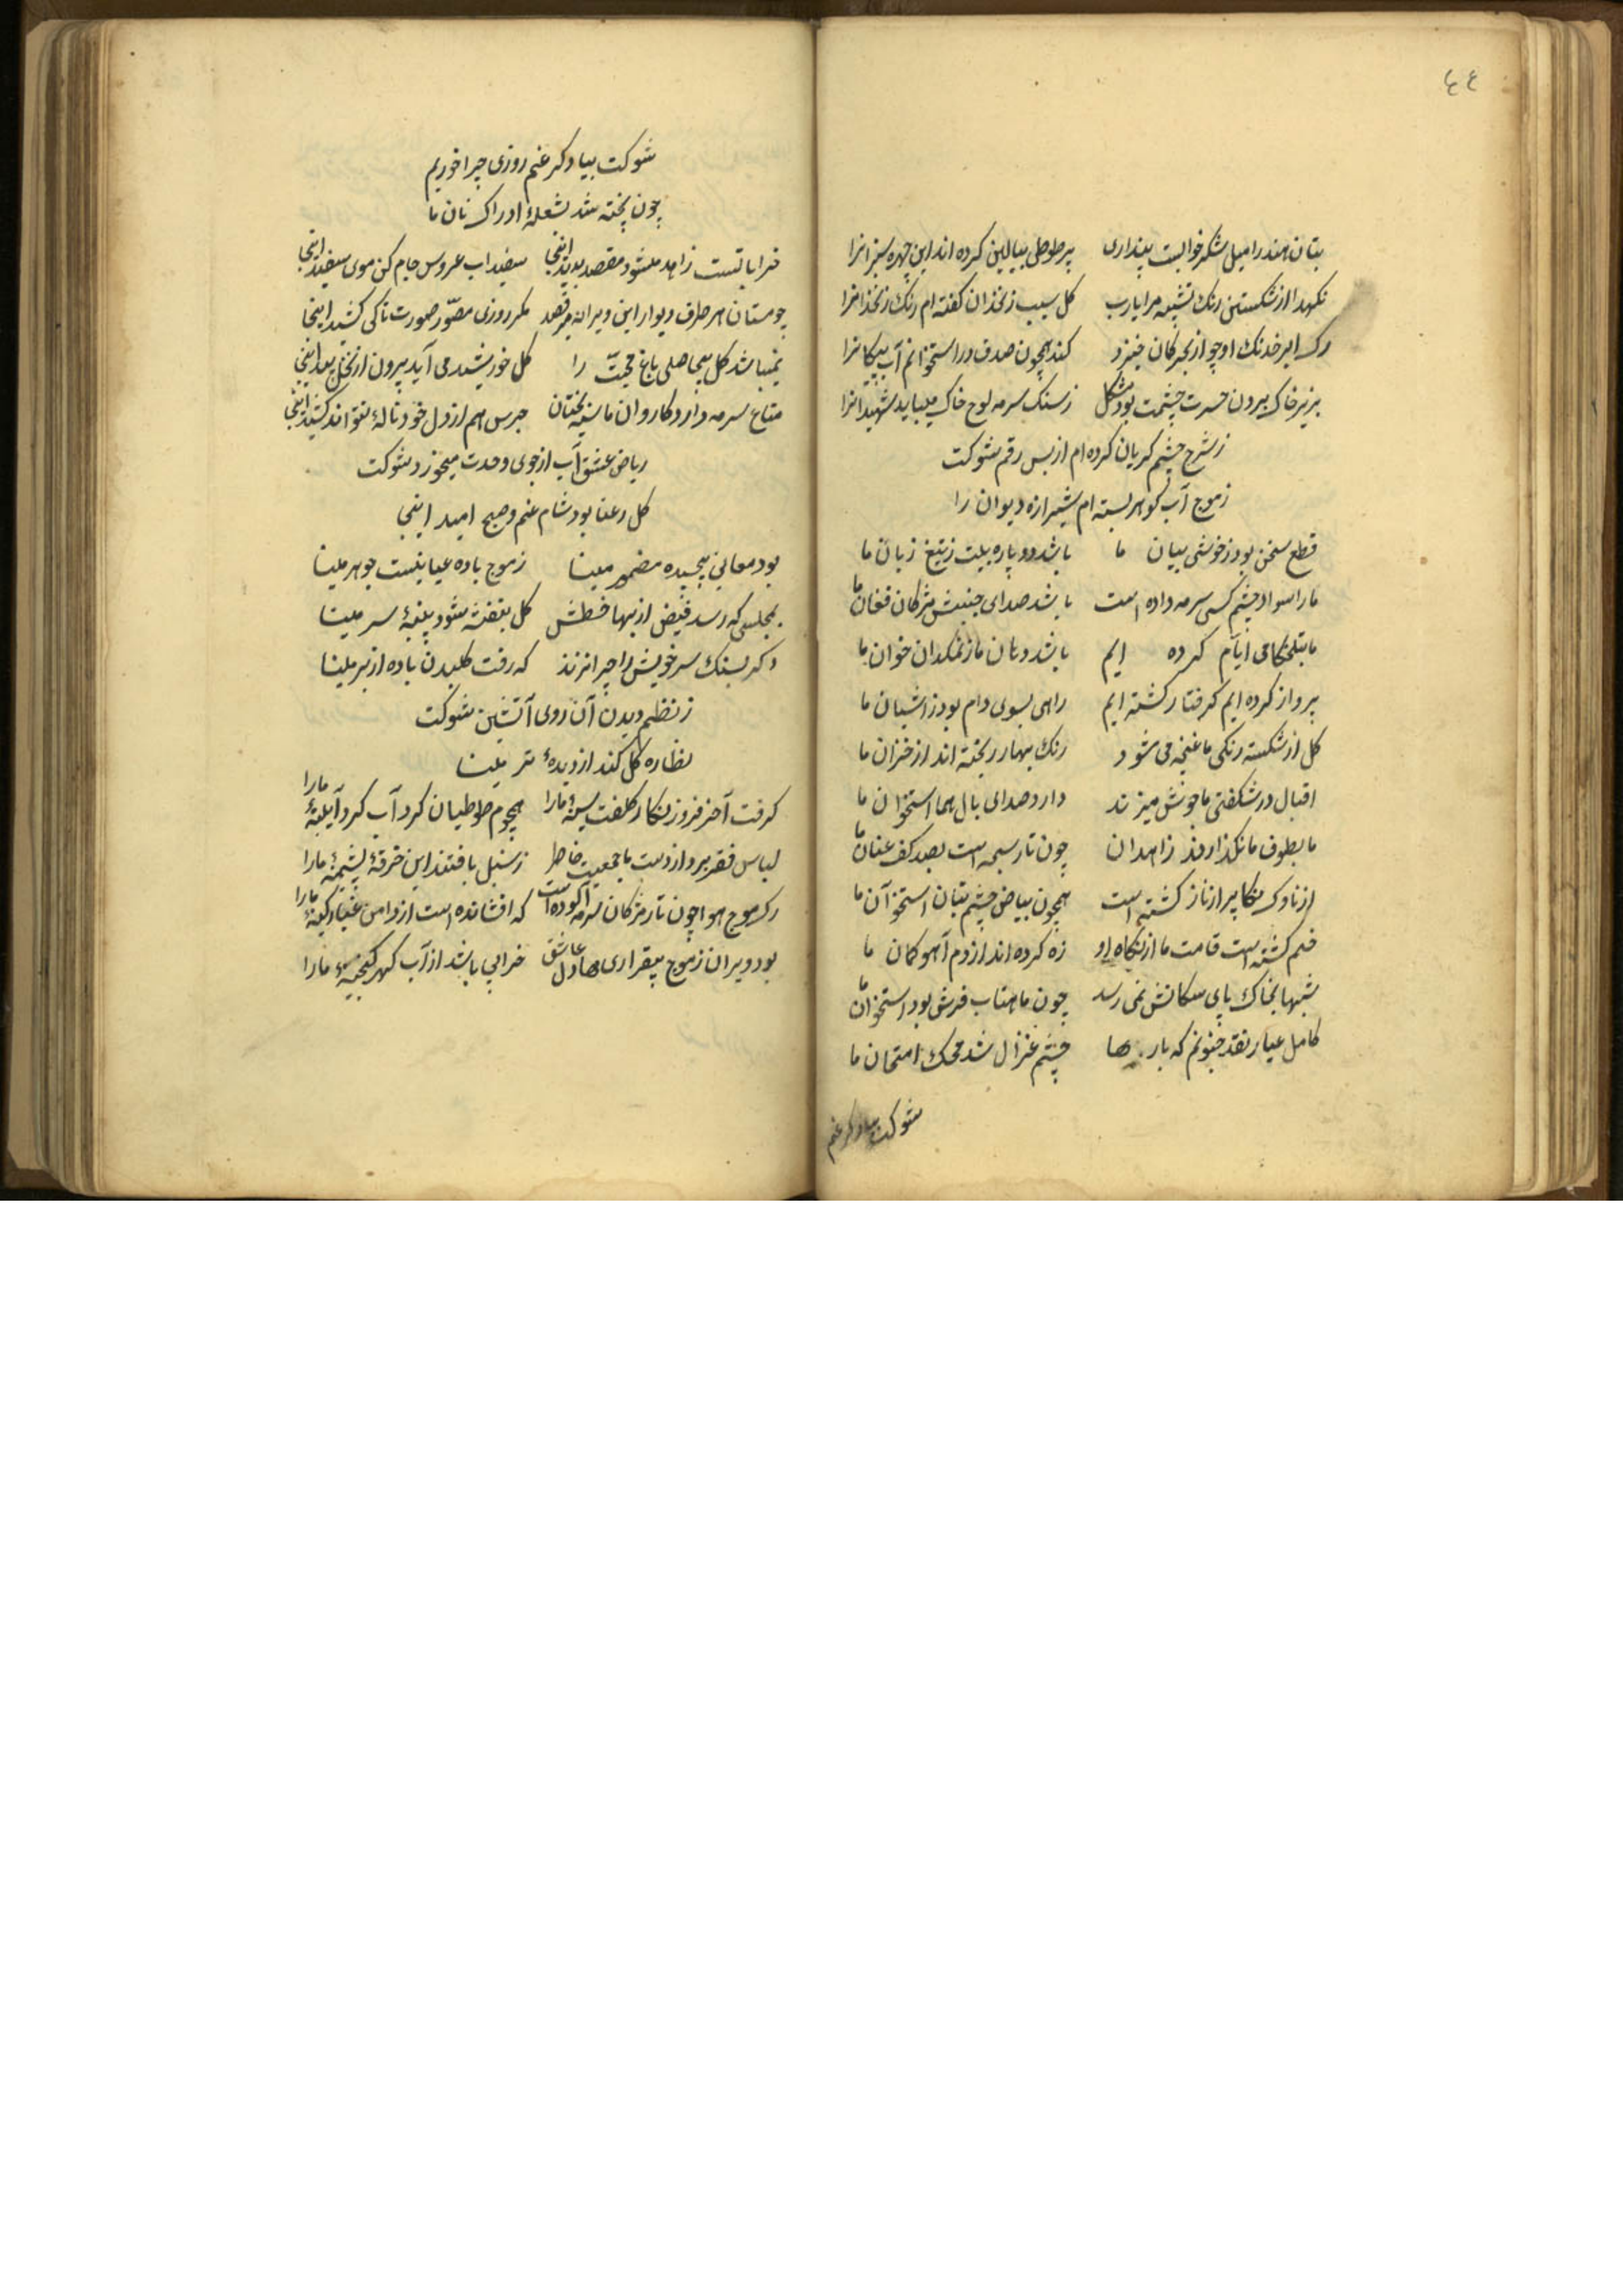 ٤٤
بتان هند را میل شکر خوابست پنداری پر طوطی ببالین کرده اند این چهره سبزانرا
نکهدار از شکستن رنک تشبیه مرا یارب کل سیب زنخدان کفته ام رنک زنخدانرا
رک ابر خدنک او چو از بحر کمان خیزد کند همچون صدف در استخوانم آب پیکانرا
بزیر خاک بیرون حسرت چشمت بود مشکل ز سنک سرمه لوح خاک میباید شهیدانرا
ز شرح چشم کریان کرده ام از بس رقم شوکت
ز موج آب کوهر بسته ام شیرازه دیوان را
قطع سخن بود ز خوشی بیان ما باشد دو پاره بیت ز تیغ زبان ما
ما را سواد چشم کسی سرمه داده است باشد صدای جنبش مژکان فغان ما
ما بتلخکامی ایام کرده ایم باشد دهان ما ز نمکدان خوان ما
پرواز کرده ایم کرفتار کشته ایم راهی بسوی دام بود ز اشیان ما
کل از شکسته رنکی ما غنچه می شود رنک بهار ریخته اند از خزان ما
اقبال در شکفتی ما جوش میزند دارد صدای بال هما استخوان ما
ما بطوف ما نکذارند زاهدان چون تار سبحه است بصد کف عنان ما
از ناوک نکاه پر از ناز کشته است همچون بیاض چشم بتان استخوان ما
خم کشته است قامت ما از نکاه او زه کرده اند از دم آهو کمان ما
شبها بخاک پای سکانش نمی رسد چون ماهتاب فرش بود استخوان ما
کامل عیار نقد جنونم که بارها چشم غزال شد محک امتحان ما
شوکت بیاد کر غم
شوکت بیا دکر غم روزی چرا خوریم
چون پخته شد بشعلهٔ ادراک نان ما
خراباتست زاهد میشود مقصد پدید اینجا سفیداب عروس جام کن موی سفید اینجا
چو مستان هر طرف دیوار این ویرانه میرقصد مکر روزی مصوّر صورت تاکی کشید اینجا
نمیباشد کل بیحاصلی باغ محبتّ را کل خورشید می آید بیرون از نخل بید اینجا
متاع سرمه دارد کاروان ما سیه بختان جرس هم از دل خود نالهٔ نتواند کشید اینجا
ریاض عشق آب از جوی وحدت میخورد شوکت
کل رعنا بود شام غم و صبح امید اینجا
بود معانی پیچیده مضمر مینا ز موج باده عیانیست جوهر مینا
بمجلسی که رسد فیض از بهار خطش کل بنفشه شود پنبهٔ سر مینا
دکر بسنک سر خویش را چرا نزند که رفت کلبدن باده از بر مینا
ز نظم دیدن آن روی آتشین شوکت
نظاره کل کند از دیدهٔ تر مینا
کرفت آخر فروز نکار کلفت سینهٔ مارا هجوم طوطیان کرد آب کرد آیینهٔ مارا
لباس فقر برد از دست ما جمعیت خاطر ز سنبل بافتند این خرقهٔ پشمینهٔ مارا
رک موج هوا چون تار مژکان سرمه آلوده است که افشانده است از دامن غبار کینهٔ مارا
بود ویران ز موج بیقراریها دل عاشق خرابی باشد از آب کهر کنجینهٔ مارا